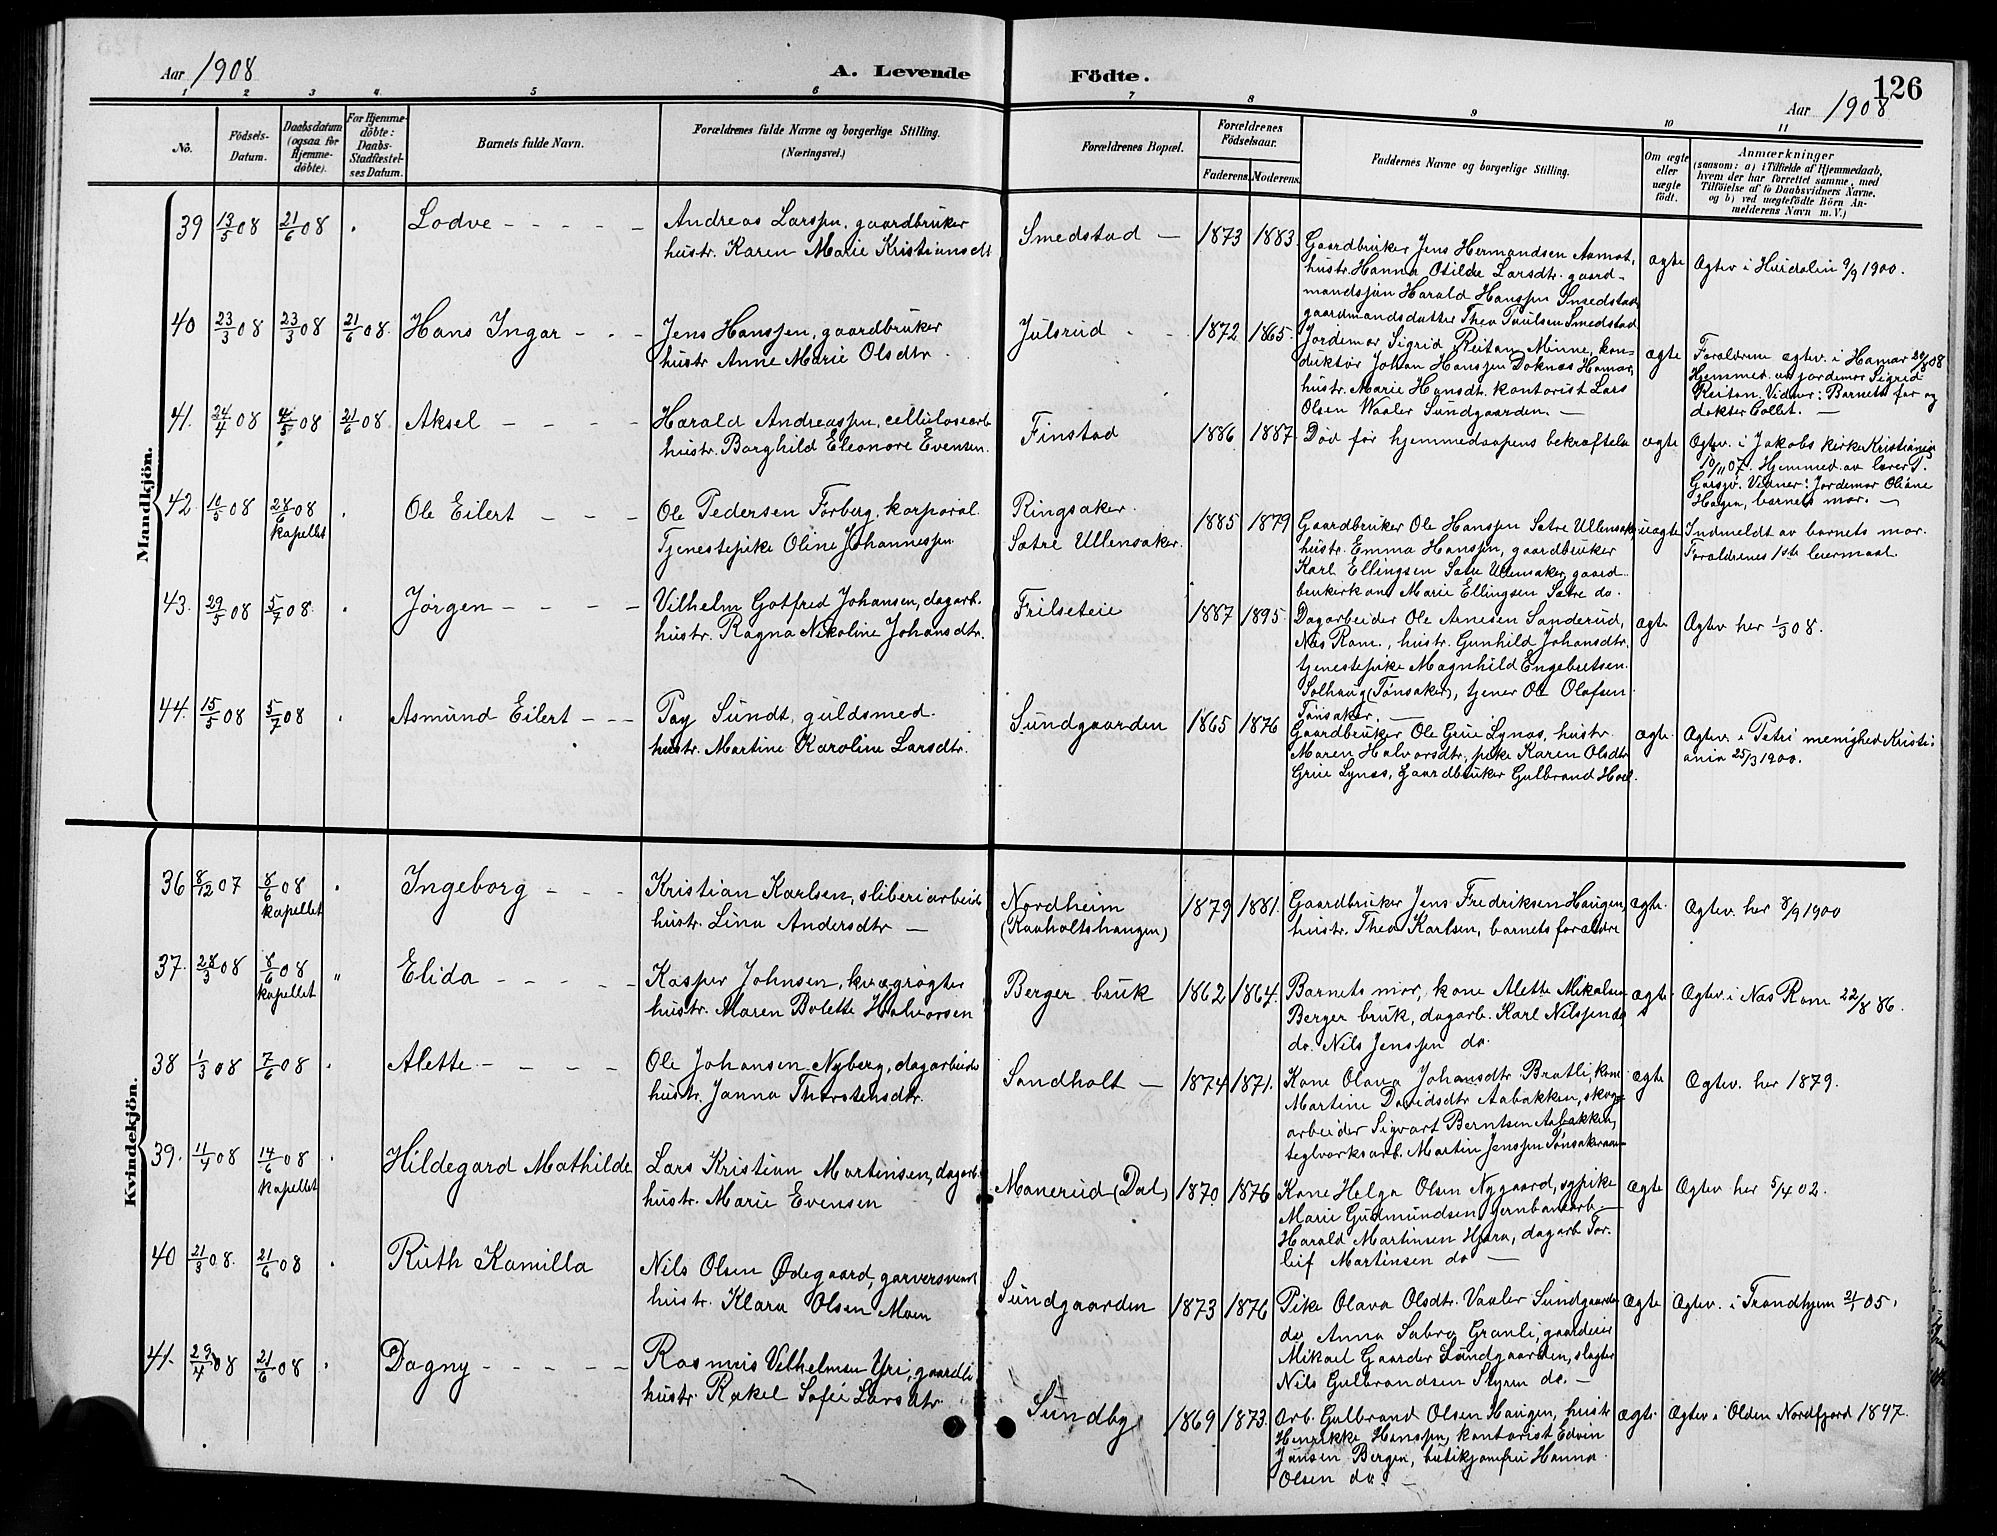 126
Aar 1908
A. Levende Födte.
Aar 1908
1 2 3 4 5 6 7 8 9 10 11
No.
Födsels-
Datum.
Daabsdatum
(ogsaa for
Hjemme-
döbte).
For Hjemme-
döbte:
Daabs-
Stadfæstel-
ses Datum.
Barnets fulde Navn.
Forældrenes fulde Navne og borgerlige Stilling.
(Næringsvei.)
Forældrenes Bopæl.
Forældrenes
Födselsaar.
Faderens. Moderens.
Faddernes Navne og borgerlige Stilling.
Om ægte
eller
uægte
födt.
Anmærkninger
(saasom: a) i Tilfælde af Hjemmedaab,
hvem der har forrettet samme, med
Tilföielse af to Daabsvidners Navne.
og b) ved uægtefödte Börn An-
melderens Navn m. V.)
Mandkjön.
39 13/5 08 21/6 08 Lodve
Andreas Larssen, gaardbruker
hustr. Karen Marie Kristiansdt
Smedstad 1873 1883.
Gaardbruker Jens Hermandsen Aamot,
hustr. Hanna Otilde Larsdtr. gaard-
mandssøn Harald Hanssen Smedstad
gaardmandsdatter Thea Paulsen Smedstad
ægte
Ægtev. i Hurdalen 9/9 1900.
40 23/3 08 23/3 08 21/6 08. Hans Ingar
Jens Hanssen, gaardbruker
hustr Anne Marie Olsdtr.
Julsrud 1872 1865.
Jordemor Sigrid Reitan Minne, kon-
duktør Johan Hanssen Doknes Hamar,
hustr. Marie Hansdt. kontorist Lars
Olsen Waaler Sundgaarden.
ægte
Forældrene ægtev. i Hamar 20/8 08
Hjemmed. av jordemor Sigrid
Reitan. Vidner: Barnets far og
dokter Collet.
41. 24/4 08 4/5 08 21/6 08 Aksel
Harald Andreassen, cellulosearb.
hustr. Borghild Eleonore Evensen.
Finstad 1886 1887.
Død før hjemmedaapens bekræftelse
ægte
Ægtev. i Jakobs kirke Kristiania
10/11 07. Hjemmed. av lærer P.
Garsjø. Vidner: Jordemor Oliane
Hagen, barnets mor.
42 10/5 08 28/6 08 kapellet Ole Eilert
Ole Pedersen Forberg, korporal
Tjenestepike Oline Johannessen
Ringsaker.
Sætre Ullensaker. 1885 1879
Gaardbruker Ole Hanssen Sætre Ullensaker
hustr. Emma Hanssen, gaardbruker
Karl Ellingsen Sætre Ullensaker, gaard-
brukerkone Marie Ellingsen Sætre do.
uægte
Indmeldt av barnets mor.
Forældrenes 1ste leiermaal.
43. 29/5 08 5/7 08. Jørgen
Vilhelm Gotfred Johansen, dagarb.
hustr. Ragna Nikoline Johansdtr.
Frilseteie 1887 1895.
Dagarbeider Ole Arnesen Sanderud,
Nes Rom., hustr. Gunhild Johansdtr,
tjenestepike Magnhild Engebretsen
Solhaug (Tønsaker), tjener Ole Olafsen
Tønsaker.
ægte
Ægtev her 1/3 08.
44. 15/5 08 5/7 08 Asmund Eilert
Pay Sundt, guldsmed.
hustr. Martine Karoline Larsdtr.
Sundgaarden 1865 1876
Gaardbruker Ole Grue Lynæs, hustr.
Maren Halvorsdtr, pike Karen Olsdtr
Grue Lynæs, gaardbruker Gulbrand Hoel.
ægte.
Ægtev. i Petri menighed Kristi-
ania 25/3 1900.
Kvindekjön.
36 8/12 07 8/6 08 kapellet Ingeborg
Kristian Karlsen, sliberiarbeid.
hustr. Lina Andersdtr
Nordheim
(Raaholtshaugen) 1879 1881.
Gaardbruker Jens Fredriksen Haugen,
hustr. Thea Karlsen, barnets forældre
ægte.
Ægtev. her 8/9 1900
37. 28/3 08 8/6 08 kapellet " Elida
Kasper Johnsen, kvægrøgter
hustr. Maren Bolette Halvorsen
Berger bruk 1862 1864.
Barnets mor, kone Alette Mikalsen
Berger bruk, dagarb. Karl Nilssen do,
do. Nils Jenssen do.
ægte.
Ægtev. i Nes Rom 22/8 86.
38 1/3 08 7/6 08 Alette
Ole Johansen Nyberg, dagarbeider
hustr. Janna Thorstensdtr.
Sandholt 1874 1871.
Kone Olava Johansdtr Bratli, kone
Martine Davidsdtr Aabakken, skog-
arbeider Sigvart Berntsen Aabakken,
teglverksarb. Martin Jenssen Tønsakeraan-
ægte
Ægtev. her 1879.
39. 11/4 08 14/6 08 kapellet Hildegard Mathilde
Lars Kristian Martinsen, dagarb.
hustr. Marie Evensen
Manerud (Dal) 1870. 1876
Kone Helga Olsen Nygaard, sypike
Marie Gudmundsen, jernbanearb.
Harald Martinsen Hjera, dagarb Tor-
leif Martinsen do
ægte
Ægtev her 5/4 02.
40 21/3 08. 21/6 08 Ruth Kamilla
Nils Olsen Ødegaard, garversvend
hustr. Klara Olsen Moen
Sundgaarden 1873 1876
Pike Olava Olsdtr. Vaaler Sundgaarden
do Anna Sæbra Granli, gaardeier
Mikael Gaarder Sundgaarden, slagter
Nils Gulbrandsen Styrm do.
ægte
Ægtev. i Trondhjem 21/1 05.
41. 29/4 08 21/6 08 Dagny
Rasmus Vilhelmsen Yri, gaardb.
hustr. Rakel Sofie Larsdtr.
Sundby 1869 1873.
Arb. Gulbrand Olsen Haugen, hustr
Henrikke Hanssen, kontorist Edvin
Jansen Bergen, butikjomfru Hanna
Olsen do.
ægte.
Ægtev. i Olden Nordfjord 1897.